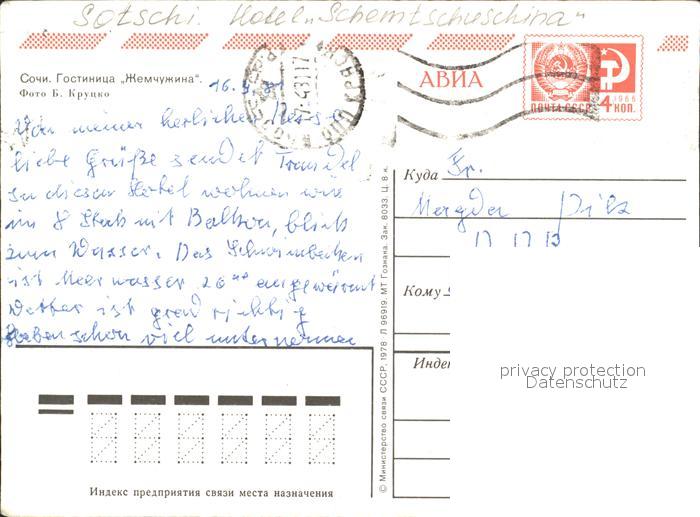 Sotschi. Hotel „Schemtschuschina"
Сочи. Гостиница „Жемчужина".
Фото Б. Круцко
АВИА
ПОЧТА СССР
1966
4 КОП.
16.4.81
Von meiner herlichen Reise
liebe Grüße sendet Traudel
In dieser Hotel wohnen wir
im 8 Stock mit Balkon, blick
zum Wasser. Das Schwimbecken
ist Meerwasser 26 angewärmt
Wetter ist grad richtig
Haben schon viel unternommen
Куда Fr.
Magda Dilz
Кому
Индек
privacy protection
Datenschutz
© Министерство связи СССР, 1978 Л 96919. МТ Гознака. Зак. 8033. Ц. 8 к.
Индекс предприятия связи места назначения